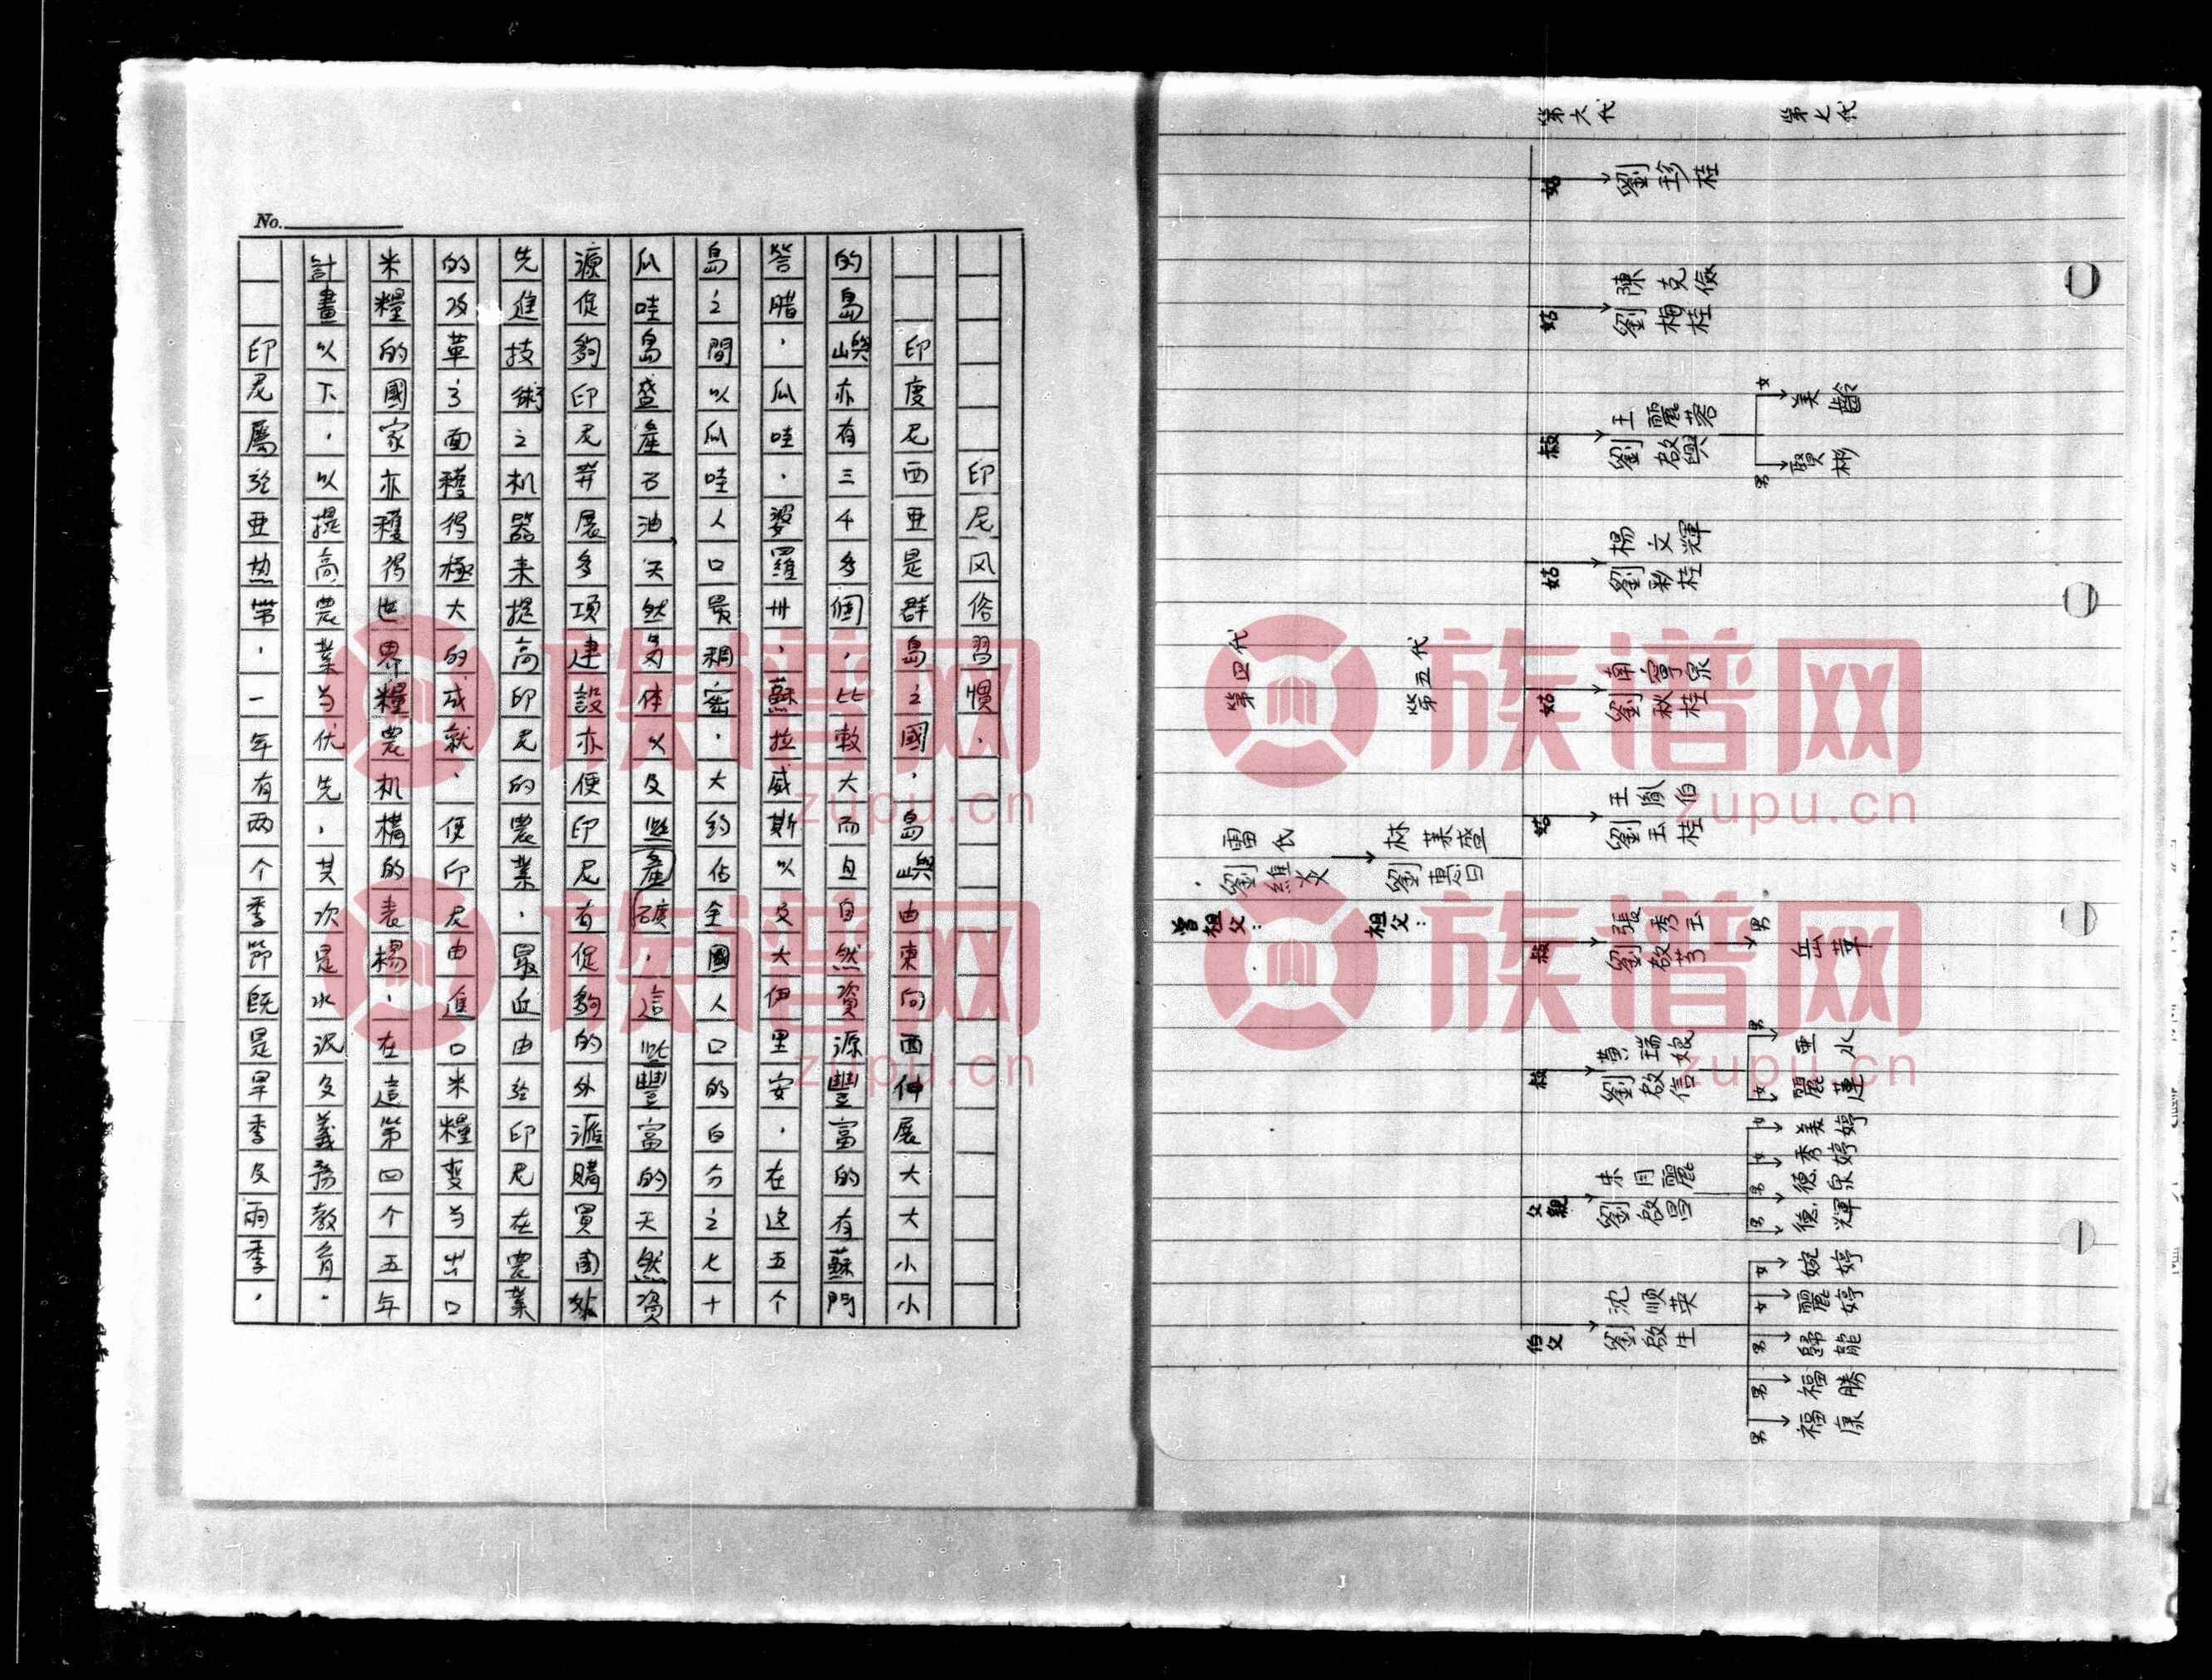 No.
印尼风俗習慣.
印度尼西亜是群島之國，島嶼由東向西伸展大大小小
的島嶼亦有三4多個，比較大而且自然資源豐富的有蘇門
答腊，瓜哇，婆羅卅，蘇拉威斯以文大伊里安．在这五个
島之間以瓜哇人口最稠密，大約佔全國人口的百分之七十
瓜哇島盛產石油、天然為体以及些產礦，這些豐富的天然資
源促夠印尼莽展多項建設亦便印尼有促夠的外滙購買國外
先進技術之机器来提高印尼的農業，最近由於印尼在農業
的改革方面穫得極大的成就，便印尼由進口米糧变当出口
米糧的國家亦穫得世界糧農机構的表楊，在這第四个五年
計畫以下，以提高農業当优先，其次是水泥及義務教育．
印尼屬於亜热带，一年有两个季節既是旱季及雨季，
第四代
曾祖父：
雷氏
劉維炎
第五代
祖父：
林葉盛
第六代
第七代
姑
劉珍桂
姑
陳克儉
劉梅桂
叔
王麗蓉
劉啟興
女
美齡
男
賢彬
姑
楊文輝
劉彩桂
姑
南寧泉
劉秋桂
姑
王胤伯
劉玉桂
叔
張秀玉
劉啟芳
男
岳華
叔
黄瑞娘
劉啟信
男
亜水
女
麗蓮
父親
朱月麗
劉啟昌
女
美婷
女
秀婷
男
德泉
男
德輝
伯父
沈順英
劉啟生
女
婉婷
女
麗婷
男
歸龍
男
福勝
男
福康
族谱网
zupu.cn
族谱网
zupu.cn
族谱网
zupu.cn
族谱网
zupu.cn